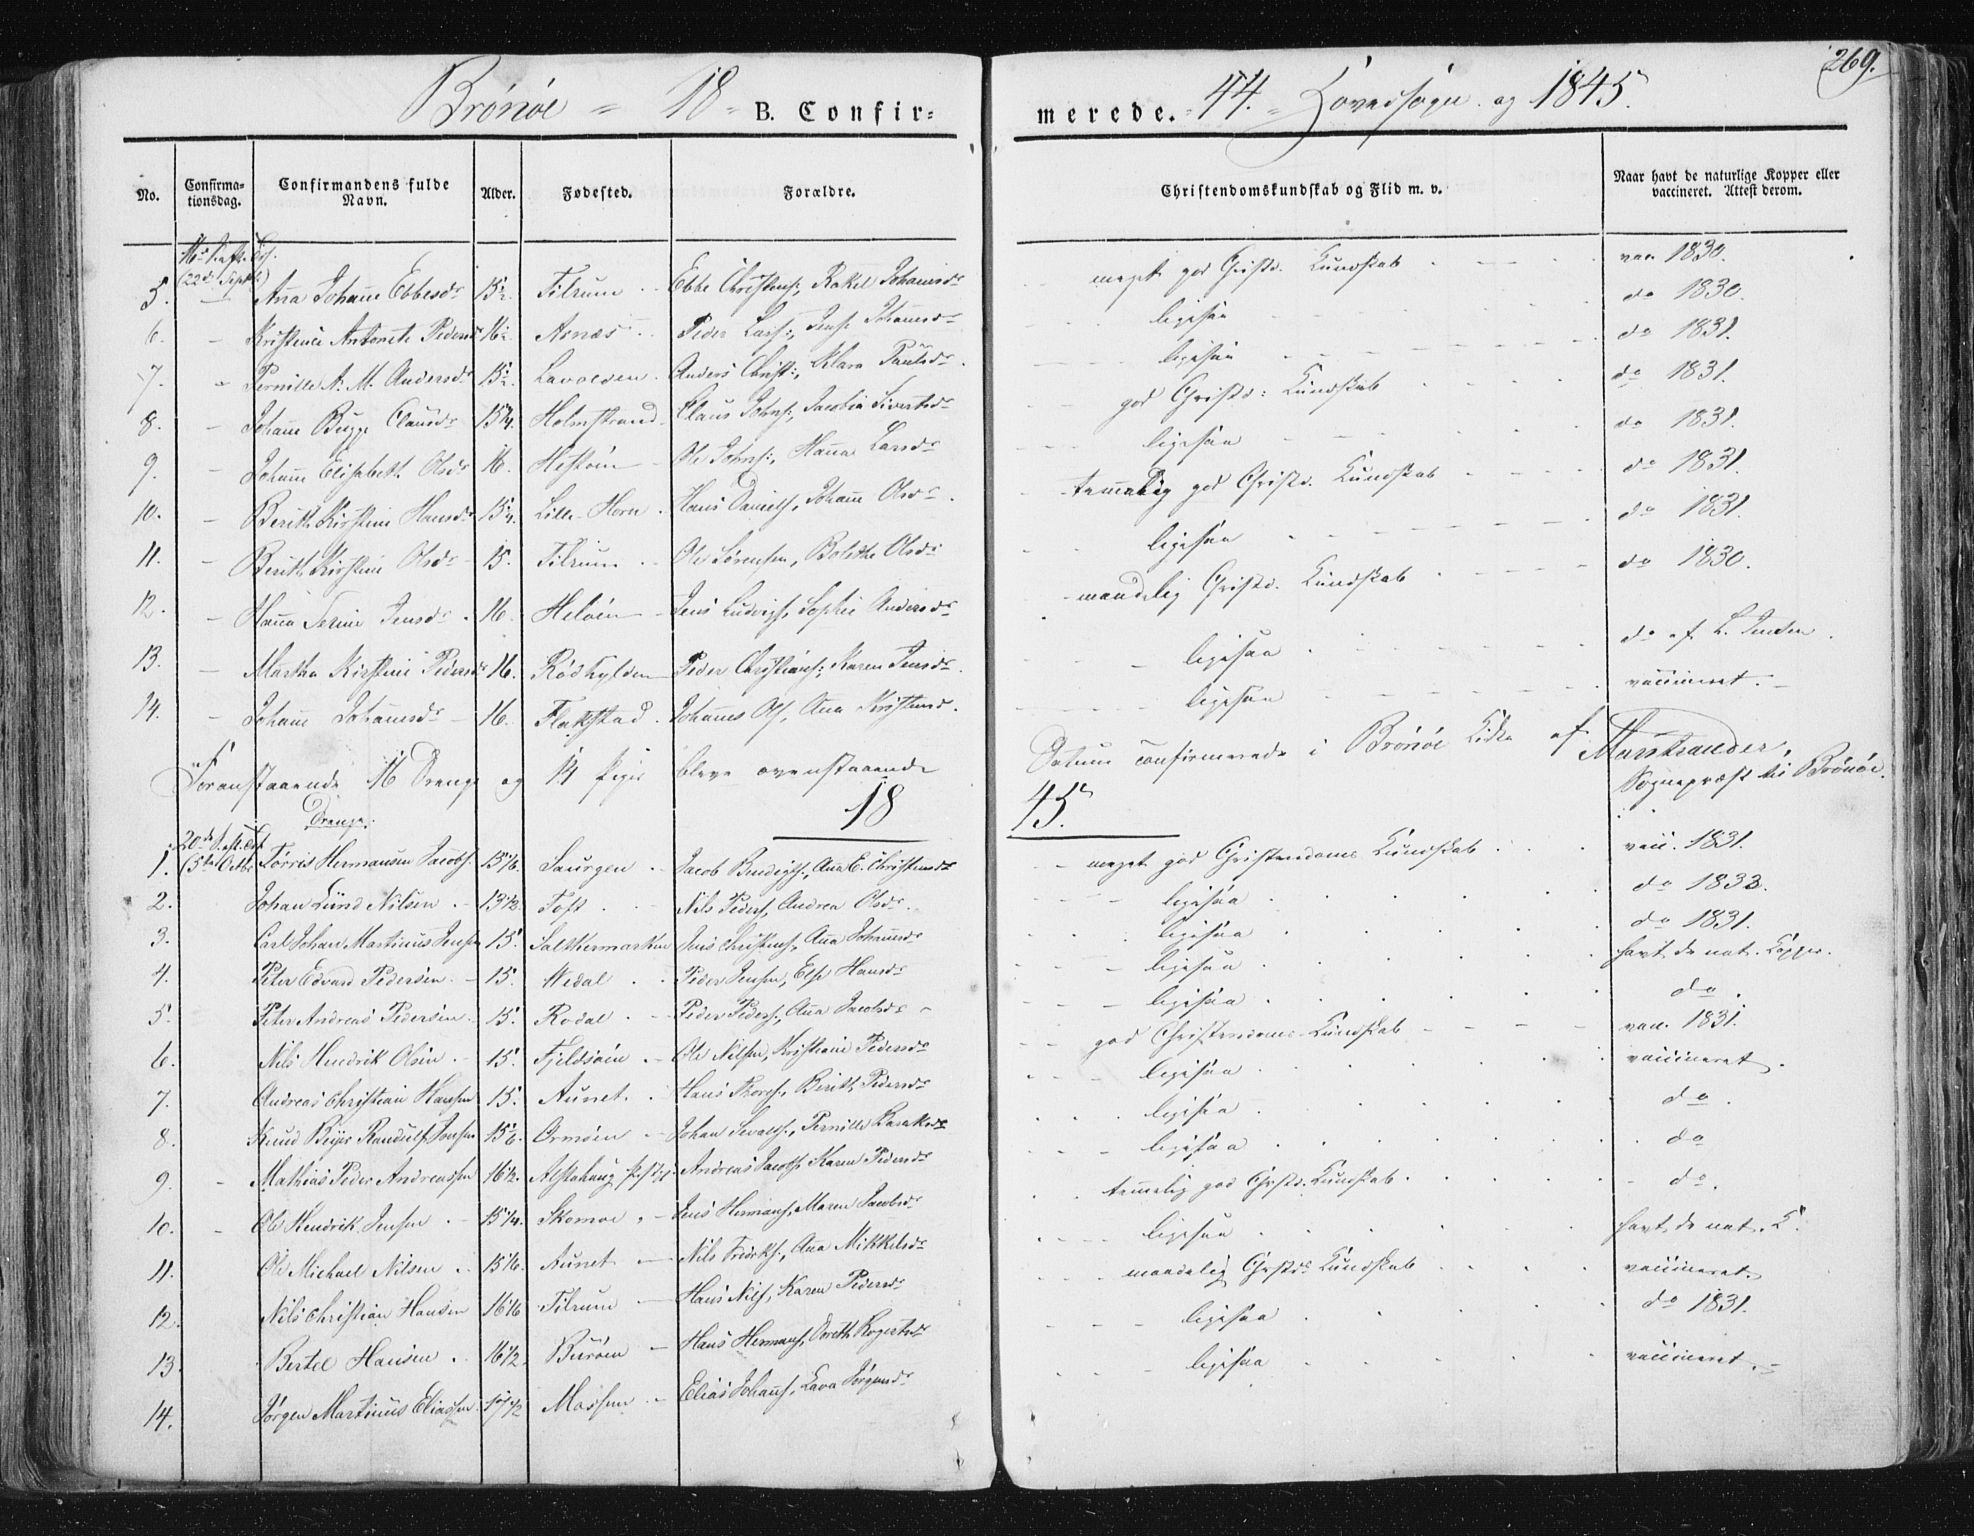 269.
Brönöe = 18 = B. Confir= merede. = 44. = Hovedsogn og 1845.
No. Confirma-tionsdag. Confirmandens fulde Navn. Alder. Fødested. Forældre. Christendomskundskab og Flid m. v. Naar havt de naturlige Kopper eller vaccineret. Attest derom.
(22de Septb.)
5. Ana Johane Ebbesdr 15½. Tilrum Ebbe Christens:, Rakel Johanisdr meget god Christd. Kundskab vac. 1830.
6. Kristence Antonete Pedersd 16½ Arnæs Peder Lars:, Johanesdr ligesaa do 1830.
7. Pernille A. M. Andersdr 15½. Lavolden Anders Christ:, Klara Paulsdr ligesaa do 1831.
8. Johane Bugge Clausdr 15¾. Holmstrand Claus Johns:, Jacobia Sivertsdr god Christd: Kundskab do 1831.
9. Johane Elisabeth Olsdr 16. Hestöen Ole Johns:, Hanna Larsdr ligesaa do 1831.
10. Berith Kirstine Hansdr 15¼. Lille-Horn Hans Daniels, Johane Olsdr temmelig god Christd. Kundskab do 1831.
11. Berith Kirstine Olsdr 15. Tilrum Ole Sörensen, Bolethe Olsdr ligesaa do 1831.
12. Hanna Serine Jensdr 16. Helöen Jens Ludvigs, Sophie Andersdr maadelig Christd. Kundskab do 1830.
13. Martha Kirstine Pedersdr 16. Rödhylden Peder Christians:, Karen Jensdr ligesaa do af L. Jensen.
14. Johane Johanesdr 16. Flakstad Johanes Ols, Ana Kristensd. ligesaa vaccineret.
Foranstaaende 16 Drenge og 14 Piger bleve ovenstaaende Datum confirmerede i Brönöe Kirke af Marstrander,
Sognepræst til Brönöe.
Drenge. 18 45.
1. (5te Octbr Törris Hermansen Jacobs. 15⅙. Saurgen Jacob Bendigts:, Ana E. Christensdr meget god Christendoms Kundskab vacc. 1831.
2. Johan Lund Nilsen 13½ Toft Nils Peders, Andrea Olsdr. ligesaa do 1833.
3. Carl Johan Martinus Jensen 15. Saltkermarken Jens Christens, Ana Johanesdr ligesaa do 1831.
4. Peter Edvard Pedersen 15. Wedal Peder Jensen, Else Hansdr ligesaa havt de nat. Kopper.
5. Peter Andreas Pedersen 15. Rodal Peder Peders, Ana Jacobsdr ligesaa do.
6. Nils Hendrik Olsen 15. Fjeldsöen Ole Nilsen, Kristiane Pedersdr god Christendoms-Kundskab vac. 1831.
7. Andreas Christian Hansen 15. Aunet. Hans Thores, Berith Pedersdr ligesaa vaccineret.
8. Knud Beyer Randulf Jonsen 15⅙. Ormöen Johan Sevals:, Pernille Baraksdr ligesaa do.
9. Mathias Peder Andreassen 16½. Alstahaug Andreas Jacobs, Karen Pedersdr ligesaa do
10. Ole Hendrik Jensen 15¼. Skomoe Jens Hermans, Maren Jacobsdr temmelig god Christd. Kundskab do.
11. Ole Michael Nilsen 15⅙. Aunet Nils Fredriks:, Ana Mikkelsdr ligesaa havt de nat. K.
12. Nils Christian Hansen 16⅙ Tilrum Hans Nils, Karen Pedersdr maadelig Christd. Kundskab vaccineret.
13. Bertel Hansen 16½ Buröen Hans Hermans, Dorth Rogertsdr ligesaa do 1831.
14. Jörgen Martinus Eliassen 17½ Mossem Elias Johans, Lava Jörgensdr ligesaa vaccineret.